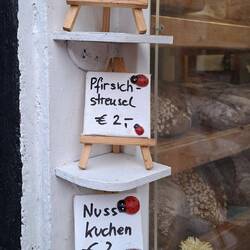 Pfirsich-
streusel
€ 2,-
Nuss
kuchen
€ 2